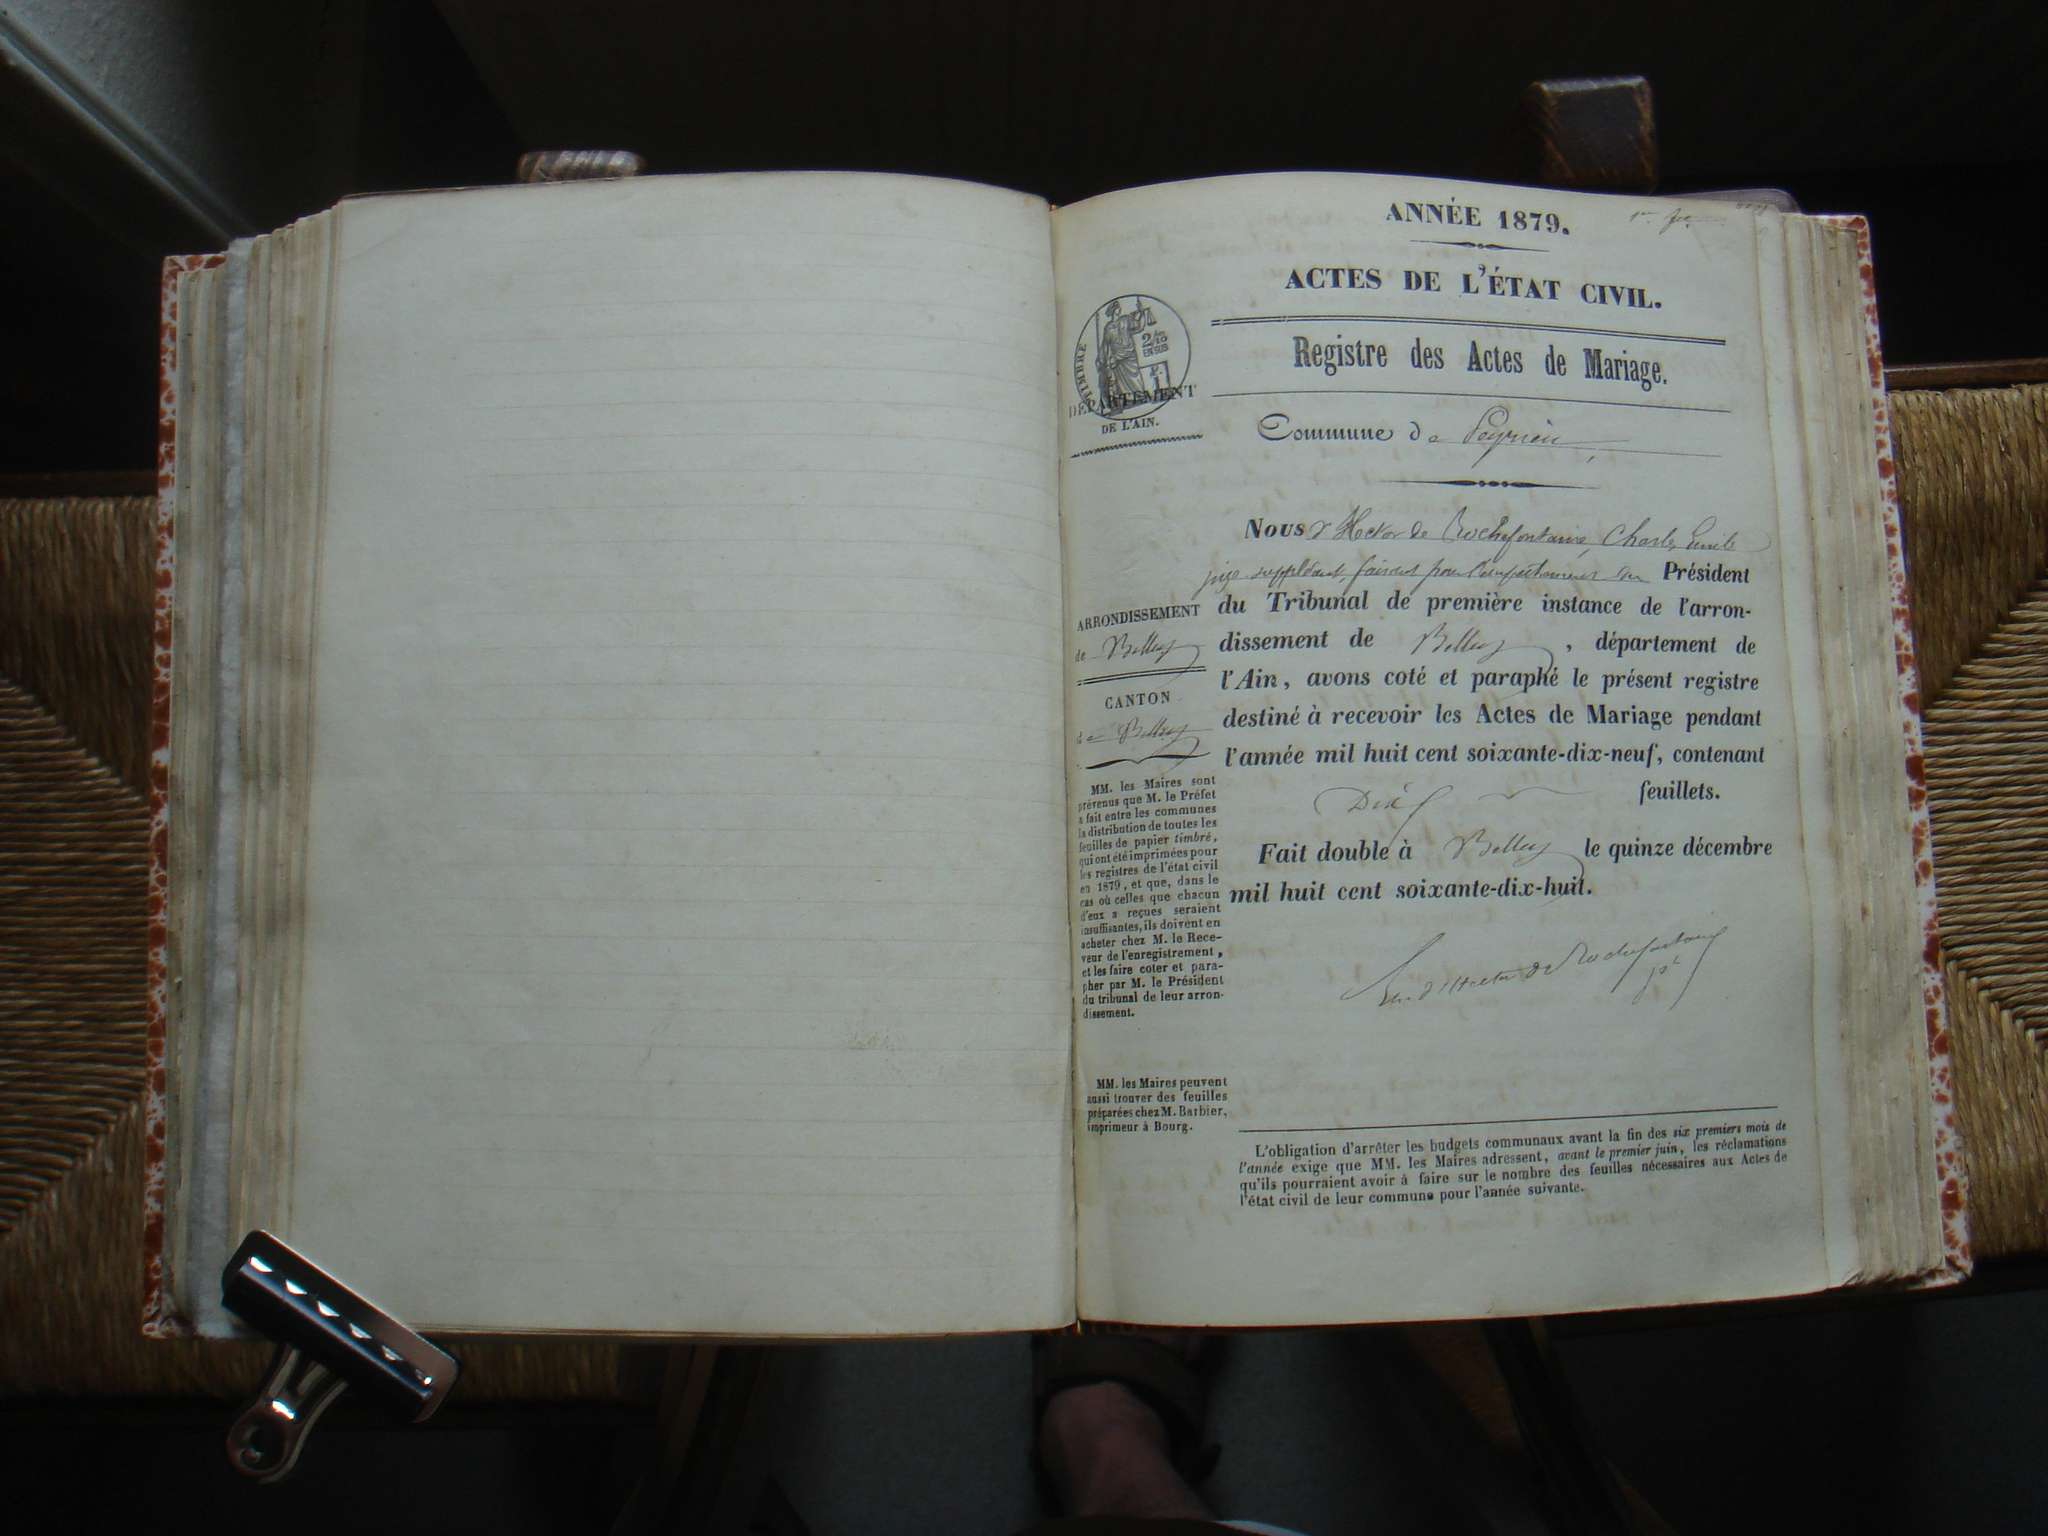 ANNÉE 1879.
ACTES DE L'ÉTAT CIVIL.
Registre des Actes de Mariage.
TIMBRE
2/10
EN SUS
DÉPARTEMENT
DE L'AIN.
Commune de Peyrieu
ARRONDISSEMENT
de Belley
CANTON
de Belley
MM. les Maires sont
prévenus que M. le Préfet
a fait entre les communes
la distribution de toutes les
feuilles de papier timbré,
qui ont été imprimées pour
les registres de l'état civil
en 1879, et que, dans le
cas où celles que chacun
d'eux a reçues seraient
insuffisantes, ils doivent en
acheter chez M. le Rece-
veur de l'enregistrement,
et les faire coter et para-
pher par M. le Président
du tribunal de leur arron-
dissement.
MM. les Maires peuvent
aussi trouver des feuilles
préparées chez M. Barbier,
imprimeur à Bourg.
Nous d'Hector de Rochefontaine, Charles Emile
juge suppléant, faisant pour l'empêchement du Président
du Tribunal de première instance de l'arron-
dissement de Belley, département de
l'Ain, avons coté et paraphé le présent registre
destiné à recevoir les Actes de Mariage pendant
l'année mil huit cent soixante-dix-neuf, contenant
Dix feuillets.
Fait double à Belley le quinze décembre
mil huit cent soixante-dix-huit.
d'Hector de Rochefontaine
L'obligation d'arrêter les budgets communaux avant la fin des six premiers mois de
l'année exige que MM. les Maires adressent, avant le premier juin, les réclamations
qu'ils pourraient avoir à faire sur le nombre des feuilles nécessaires aux Actes de
l'état civil de leur commune pour l'année suivante.